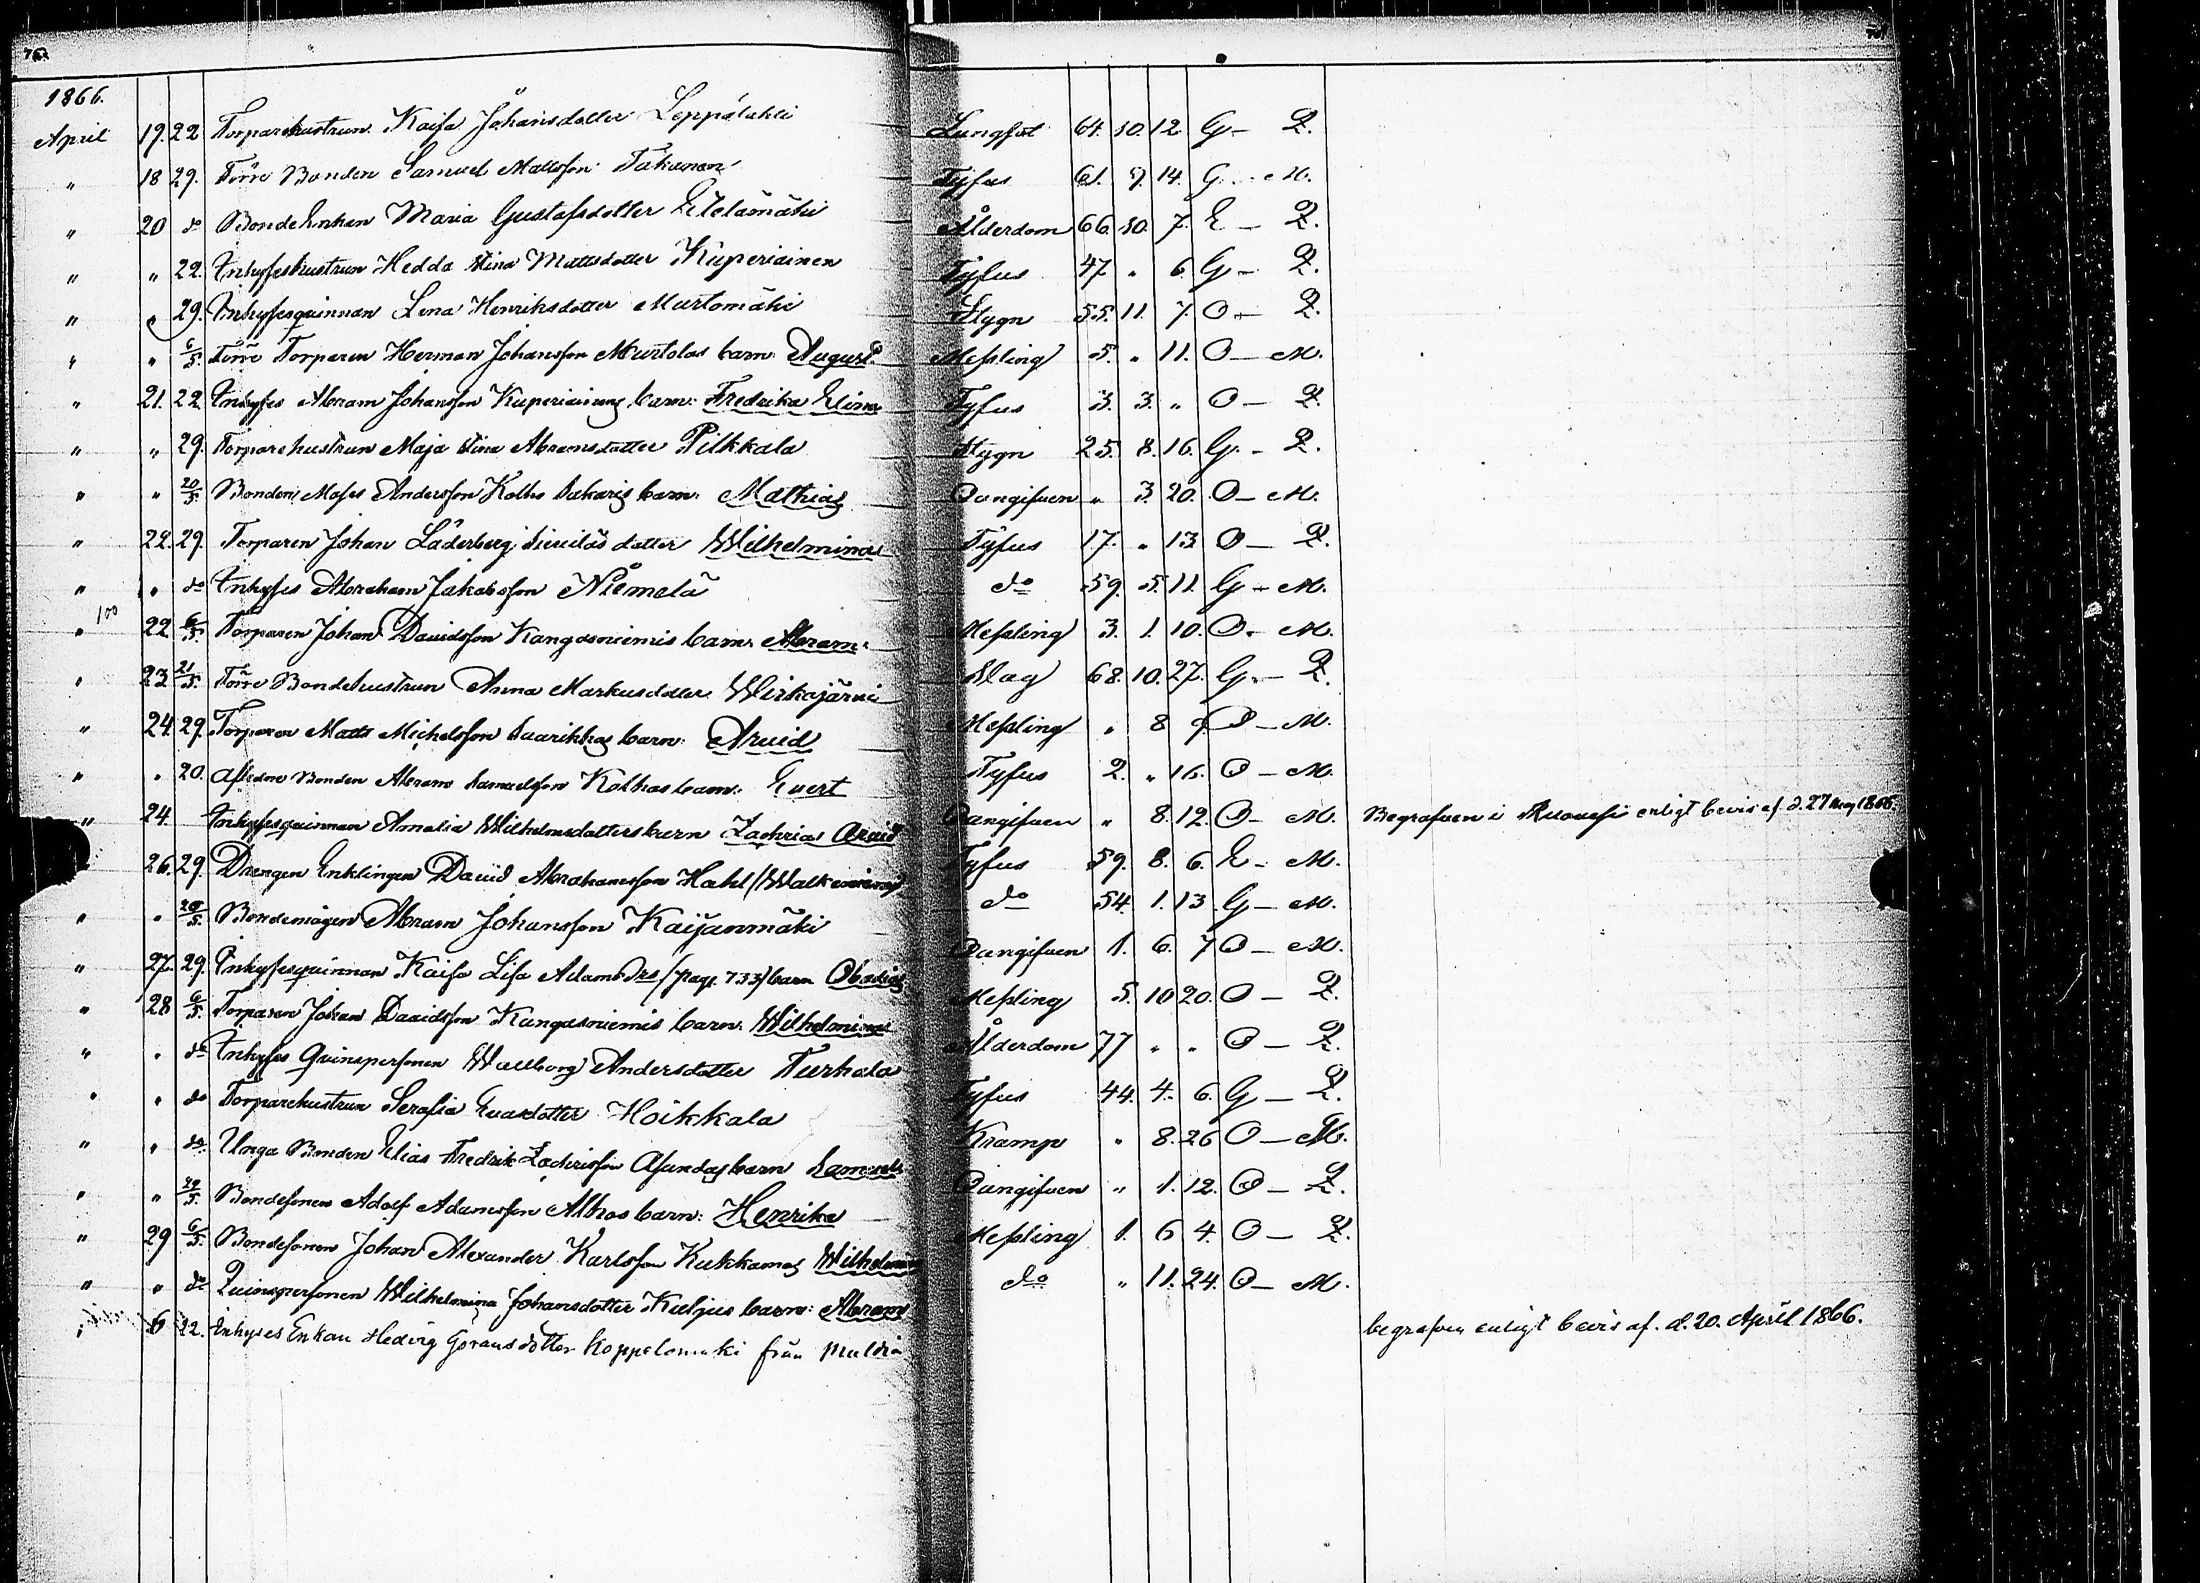 1866.
April 19. 22 Torparehustrun Kaisa Johansdotter Leppälahti Lungsot 64. 10. 12 G – Q.
" 18 29. Förre Bonden Samuel Mattsson Takanen Tyfus 61. 9. 14. G. – M.
" 20 do Bonde Enkan Maria Gustafsdotter Etelämäki Ålderdom 66. 10. 7. E – Q.
" " 22. Inhyseshustrun Hedda Stina Mattsdotter Kuperiainen Tyfus 47 " 6. G – Q.
" " 29. Inhysesqvinnan Lena Henriksdotter Murtomäki Stygn 55. 11. 7. O – Q.
" " 6/5. Förre Torparen Herman Johansson Murtolas barn: August. Messling 5. " 11. O – M.
" 21. 22. Inhyses Abram Johansson Kuperiainens barn: Fredrika Elina Tyfus 3. 3. " O – Q.
" " 29. Torparehustrun Maja Stina Abramsdotter Pilkkala Stygn 25. 8. 16. G. – Q.
" " 20/5. Bonden Moses Andersson Kolhi Sakaris barn: Mathias Oangifven " 3. 20. O – M.
" 22. 29. Torparen Johan Läderberg dotter Wilhelmina Tyfus 17. " 13 O – Q.
" " do Inhyses Abraham Jakobsson Niemelä do 59. 5. 11. G – M.
" 100 22 6/5. Torparen Johan Davidsson Kangasniemis barn: Abram. Messling 3. 1. 10. O. – M.
" 23 21/5. Förre Bondehustrun Anna Markusdotter Wirkajärvi Slag 68. 10. 27. G. – Q.
" 24. 29. Torparen Matts Michelsson Saarikkas barn: Arvid Messling " 8 O – M.
" " 20. Aflidne Bonden Abrams Samuelsson Kolhas barn: Evert Tyfus 2. " 16. O – M.
" 24. Inhysesqvinnan Amalia Wilhelmsdotters barn Zachrias Arvid Oangifven " 8. 12. O – M. Begrafven i enligt bevis af d. 27 Maj 1866.
26. 29. Drengen Enklingen David Abrahamsson Hahl Tyfus 59. 8. 6. E – M.
" " 20/5. Bondemågen Abram Johansson Kaijanmäki do 54. 1. 13 G – M.
" 27. 29. Inhysesqvinnan Kaisa Lisa Adamsdrs (pag. 733) barn Obadias Oangifven 1. 6. 7 O – M.
" 28 6/5. Torparen Johan Davidsson Kangasniemis barn: Wilhelmina Messling 5. 10 20. O – Q.
" " do Inhyses Qvinspersonen Wallborg Andersdotter Turhala Ålderdom 77 " " O – Q.
" " do Torparehustrun Serafia Evasdotter Hoikkala Tyfus 44. 4. 6. G – Q.
" " do Unga Bonden Elias Fredrik Zachrisson Asundas barn Samuel Kramp " 8. 26 O – M.
" " 20/5. Bondesonen Adolf Adamsson Alhos barn: Henrika Oangifven " 1. 12. O – Q.
" 29 6/5. Bondesonen Johan Alexander Karlsson Kukkamas Wilhelmina Messling 1. 6 4. O – Q.
" " do Qvinspersonen Wilhelmina Johansdotter Kuljus barn: Abram do " 11. 24. O – M.
22. Inhyses Enkan Hedvig Göransdotter Koppelomäki från Multia begrafven enligt bevis af. d. 20. April 1866.